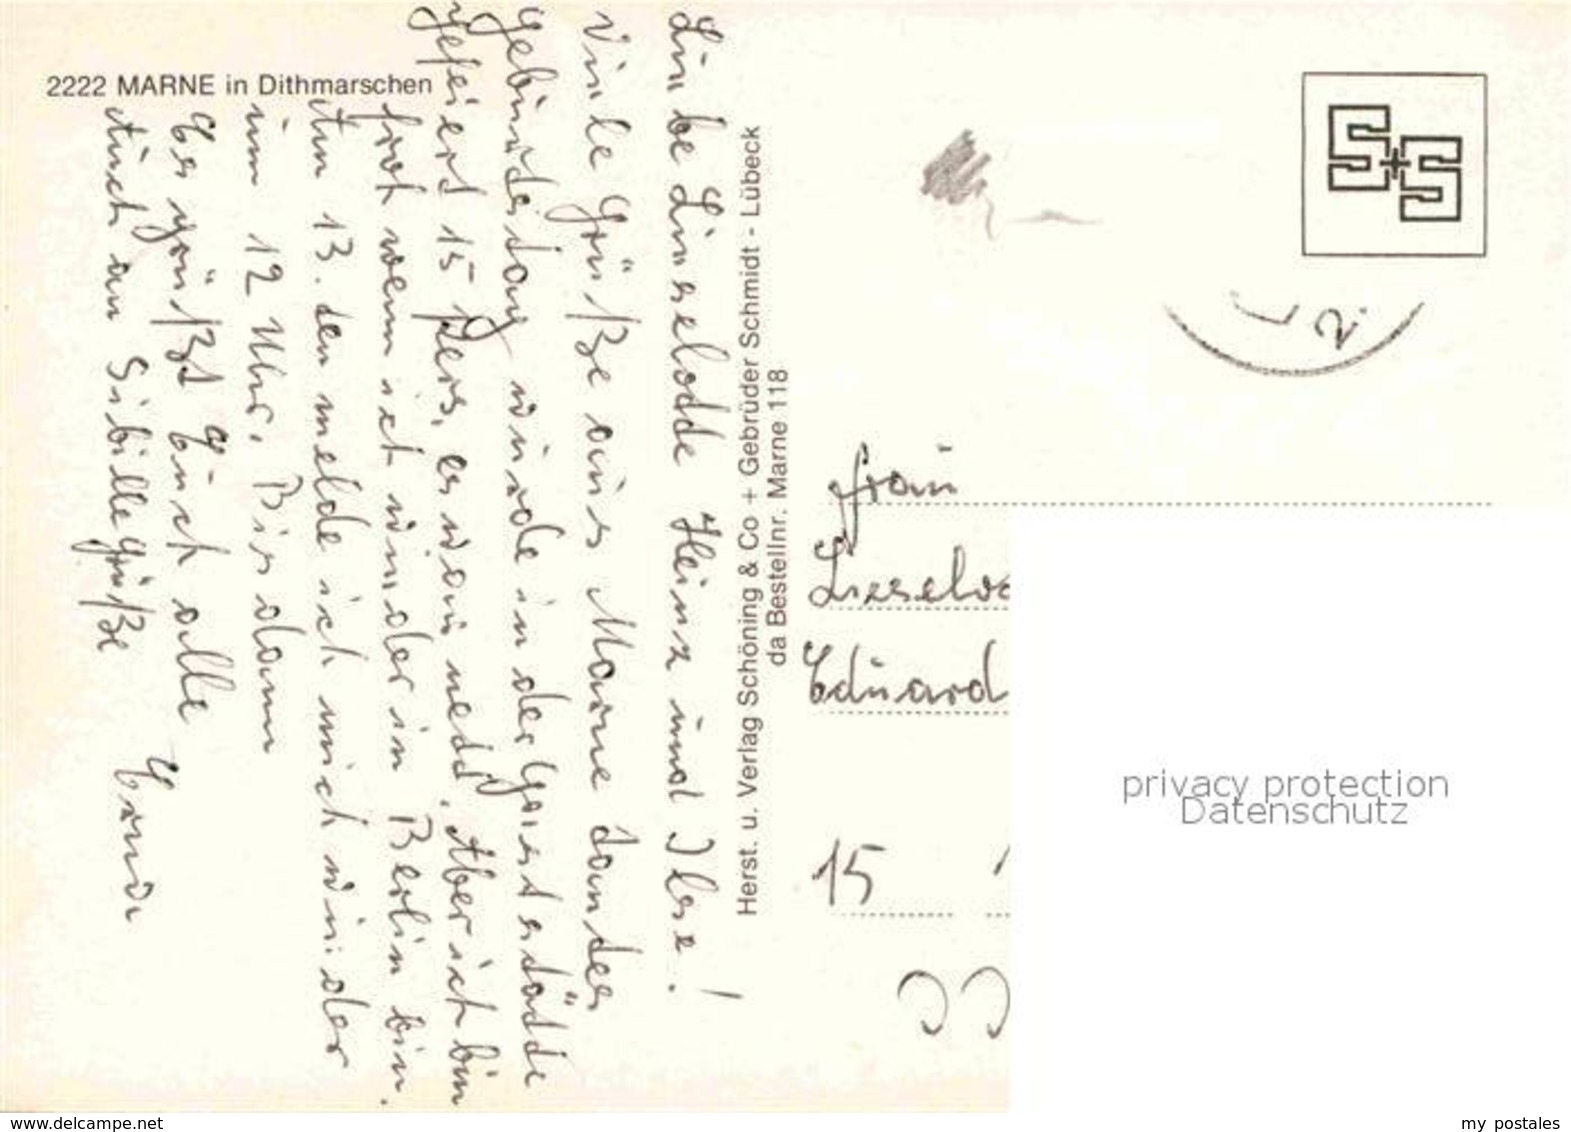 2222 MARNE in Dithmarschen
Liebe Lieselotte Heinz und Ilse!
Viele Grüße aus Marne Tantes
Geburtstag wurde in der Gaststätte
gefeiert 15 Pers. es war nett. Aber ich bin
froh wenn ich wieder in Berlin bin.
Am 13. ten melde ich mich wieder
um 12 Uhr. Bis dann
Es grüßt Euch alle
Auch an Sibille Grüße
Erna
Herst. u. Verlag Schöning & Co + Gebrüder Schmidt - Lübeck
da Bestellnr. Marne 118
S+S
2.
Frau
Lieselo
Eduard
15
33
privacy protection
Datenschutz
www.delcampe.net
my postales